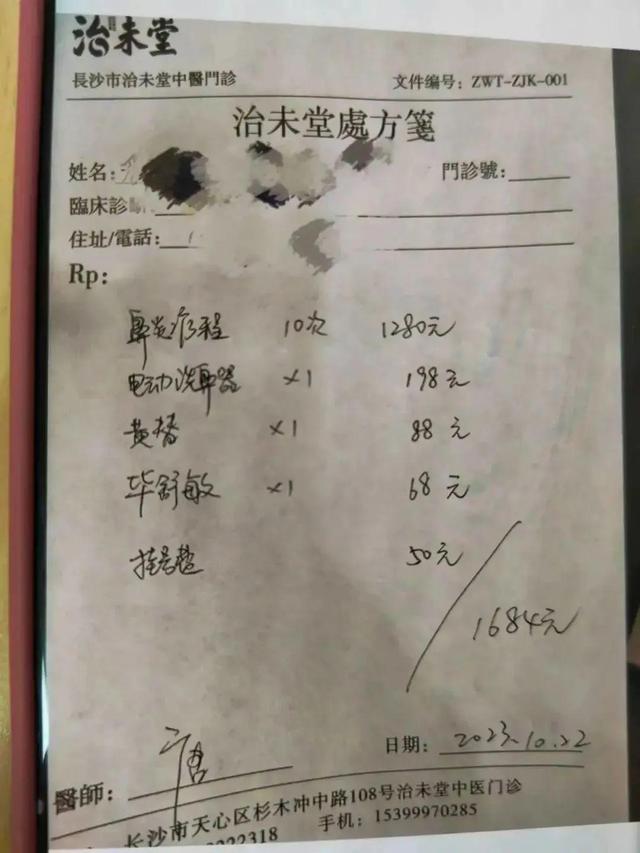 治未堂
長沙市治未堂中醫門診 文件编号：ZWT-ZJK-001
治未堂處方箋
姓名： 門診號：
臨床診
住址/電話：
Rp：
鼻炎疗程 10次 1280元
电动洗鼻器 ×1 198元
黄替 ×1 88元
毕舒敏 ×1 68元
挂号费 50元
1684元
日期：2023.10.22
醫師：
长沙市天心区杉木冲中路108号治未堂中医门诊
222318 手机：15399970285